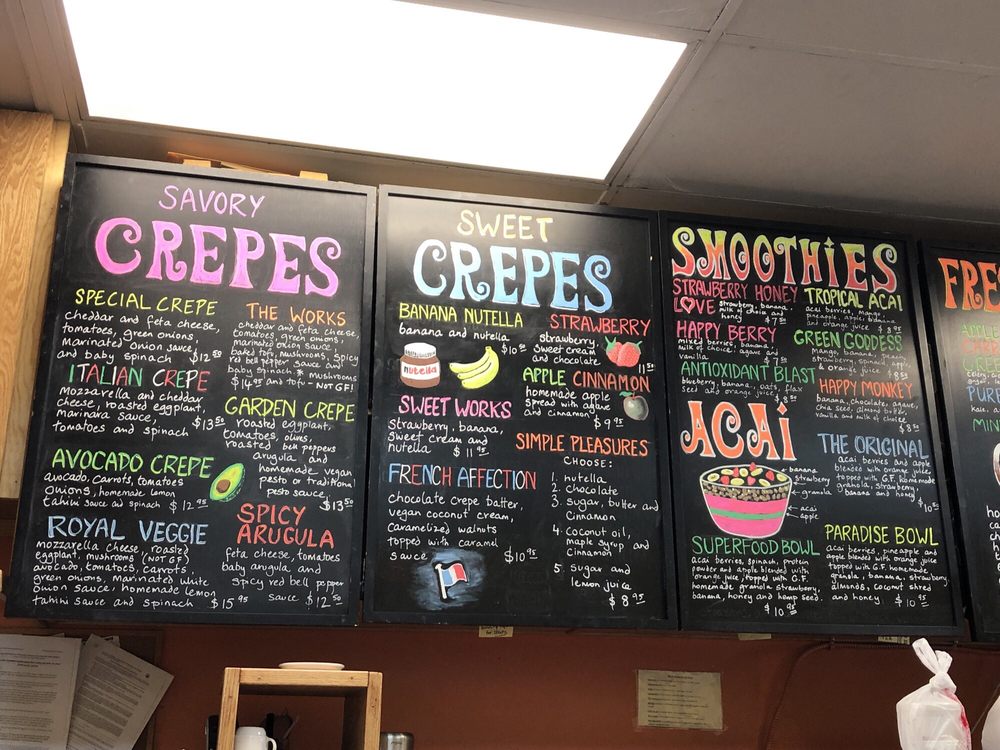 SAVORY
CREPES
SPECIAL CREPE
cheddar and feta cheese,
tomatoes, green onions,
marinated onion sauce,
and baby spinach $12.50
ITALIAN CREPE
mozzarella and cheddar
cheese, roasted eggplant,
marinara sauce,
tomatoes and spinach $13.50
AVOCADO CREPE
avocado, carrots, tomatoes
onions, homemade lemon
tahini sauce and spinach $12.95
ROYAL VEGGIE
mozzarella cheese, roasted
eggplant, mushrooms (NOT GF)
avocado, tomatoes, carrots,
green onions, marinated white
onion sauce, homemade lemon
tahini sauce and spinach $15.95
THE WORKS
cheddar and feta cheese
tomatoes, green onions,
marinated onion sauce,
baked tofu, mushrooms, spicy
red bell pepper sauce and
baby spinach.* mushrooms
$14.95 and tofu - NOT GF!
GARDEN CREPE
roasted eggplant,
tomatoes, olives,
roasted bell peppers
arugula and
homemade vegan
pesto or traditional
pesto sauce
$13.50
SPICY
ARUGULA
feta cheese, tomatoes
baby arugula, and
spicy red bell pepper
sauce $12.50
SWEET
CREPES
BANANA NUTELLA
banana and nutella
$10.50
nutella
SWEET WORKS
strawberry, banana,
sweet cream and
nutella $11.95
FRENCH AFFECTION
chocolate crepe batter,
vegan coconut cream,
caramelized walnuts
topped with caramel
sauce $10.95
STRAWBERRY
strawberry,
sweet cream
and chocolate
11.50
APPLE CINNAMON
homemade apple
spread with agave
and cinnamon
$9.95
SIMPLE PLEASURES
CHOOSE:
1. nutella
2. chocolate
3. sugar, butter and
cinnamon
4. coconut oil,
maple syrup and
cinnamon
5. sugar and
lemon juice
$8.95
SMOOTHIES
STRAWBERRY HONEY
LOVE strawberry, banana,
milk of choice and
honey
HAPPY BERRY
mixed berries, banana,
milk of choice, agave and
vanilla
ANTIOXIDANT BLAST
blueberry, banana, oats, flax
seed and orange juice
TROPICAL ACAI
acai berries, mango,
pineapple, apple, banana
and orange juice $8.95
GREEN GODDESS
mango, banana,
strawberry, spinach
& orange juice
HAPPY MONKEY
banana, chocolate, agave,
chia seed, almond butter,
vanilla and milk of choice
ACAI
banana
strawberry
granola
acai
apple
SUPERFOOD BOWL
acai berries, spinach, protein
powder and apple blended with
orange juice, topped with G.F.
homemade granola, strawberry,
banana, honey and hemp seed.
$10.95
THE ORIGINAL
acai berries and apple
blended with orange juice,
topped with G.F. homemade
granola, strawberry,
banana and honey
PARADISE BOWL
acai berries, pineapple and
apple blended with orange juice
topped with G.F. homemade
granola, banana, strawberry,
almonds, coconut shred
and honey.
FRE